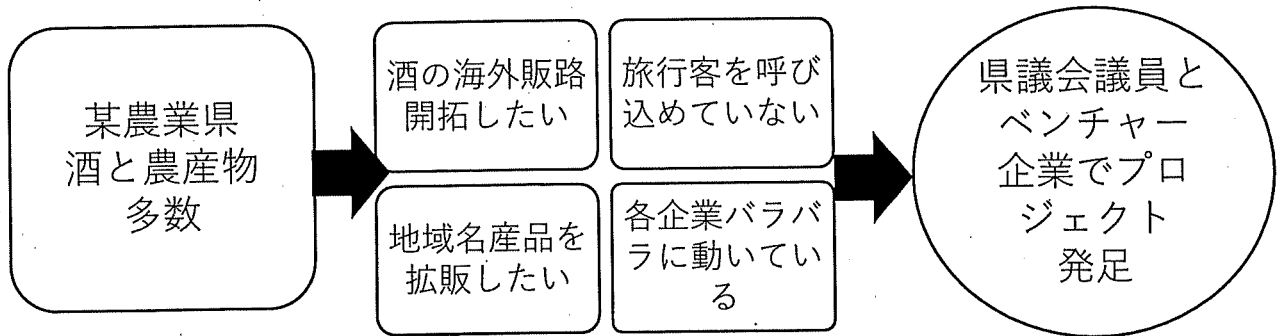 某農業県
酒と農産物
多数
酒の海外販路
開拓したい
旅行客を呼び
込めていない
地域名産品を
拡販したい
各企業バラバ
ラに動いてい
る
県議会議員と
ベンチャー
企業でプロ
ジェクト
発足